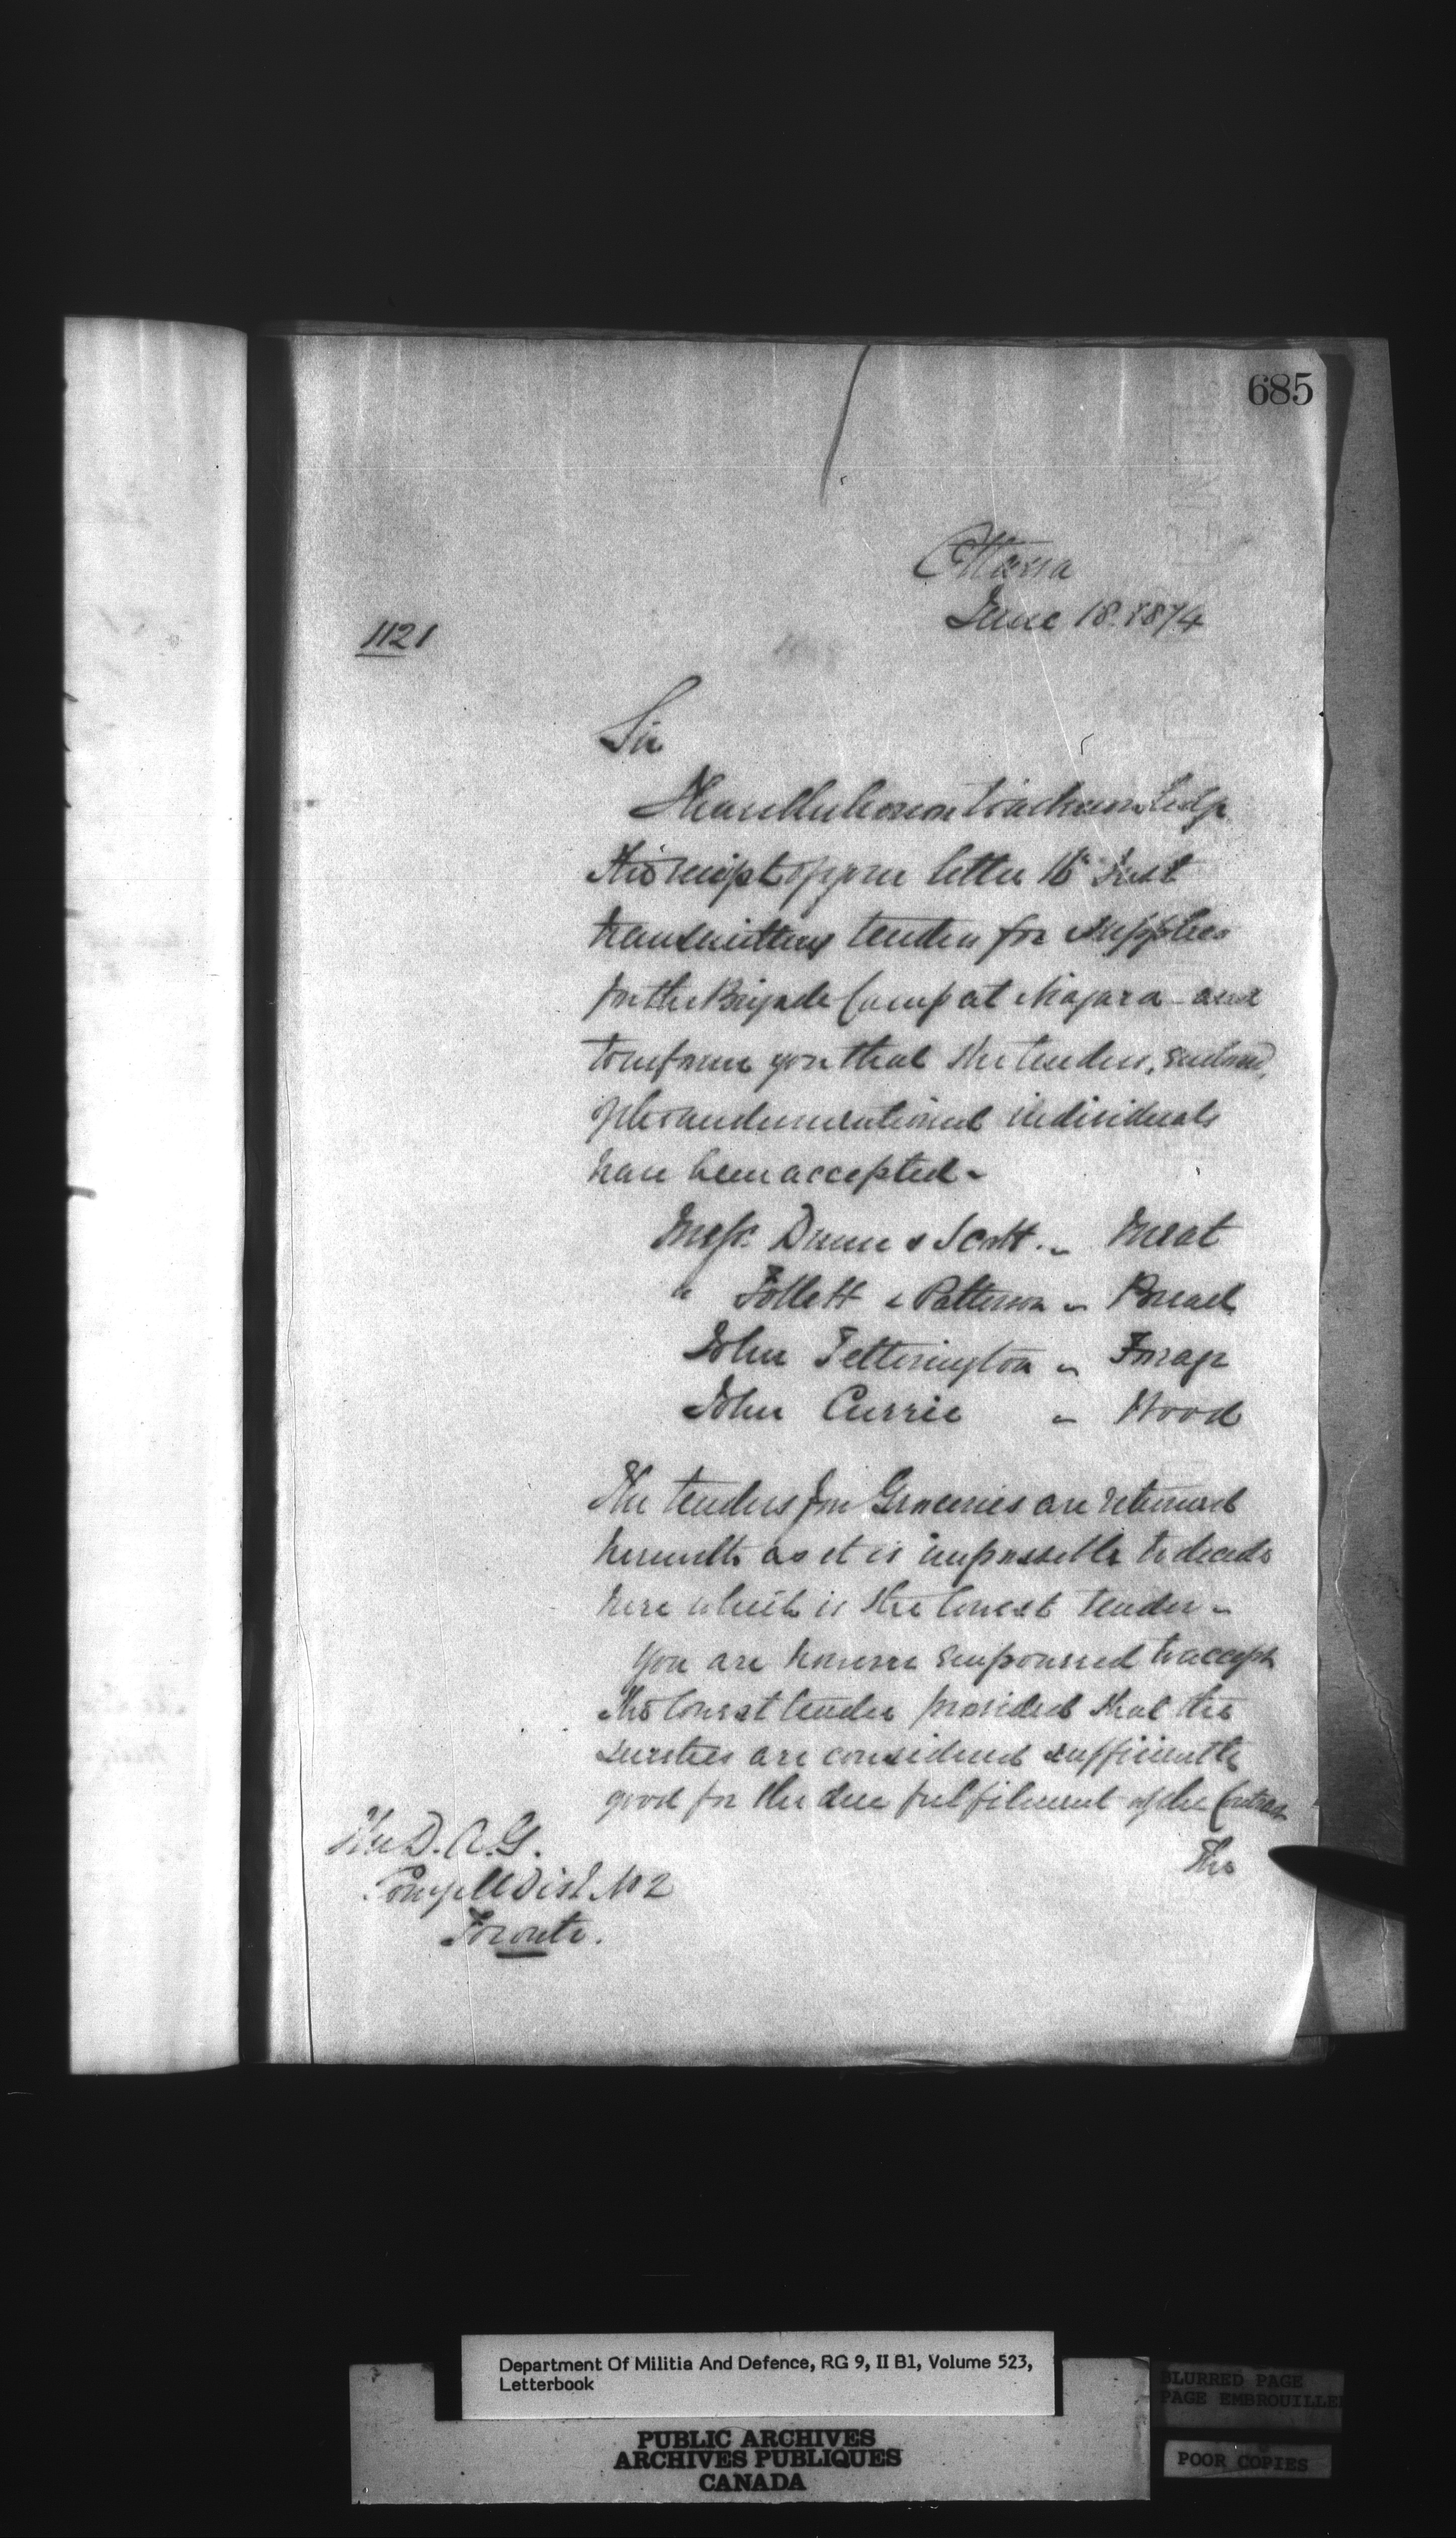 685
Ottawa
June 18. 1874
1121
Sir
I have the honor to acknowledge
the receipt of your letter 16th Inst
transmitting tenders for supplies
for the Brigade Camp at Niagara - and
to inform you that the tenders, enclosed,
of the undermentioned individuals
have been accepted -
Messrs. Dunn & Scott. - Meat
" Follett & Patterson - Bread
John Tetterington - Forage
John Currie - Wood
The tenders for Groceries are returned
herewith as it is impossible to decide
here which is the lowest tender -
You are however empowered to accept
the lowest tender provided that the
sureties are considered sufficiently
good for the due fulfilment of the Contract
The
The D. A. G.
Comg M Dist. No 2
Toronto.
Department Of Militia And Defence, RG 9, II B1, Volume 523,
Letterbook
BLURRED PAGE
PAGE EMBROUILLEE
PUBLIC ARCHIVES
ARCHIVES PUBLIQUES
CANADA
POOR COPIES